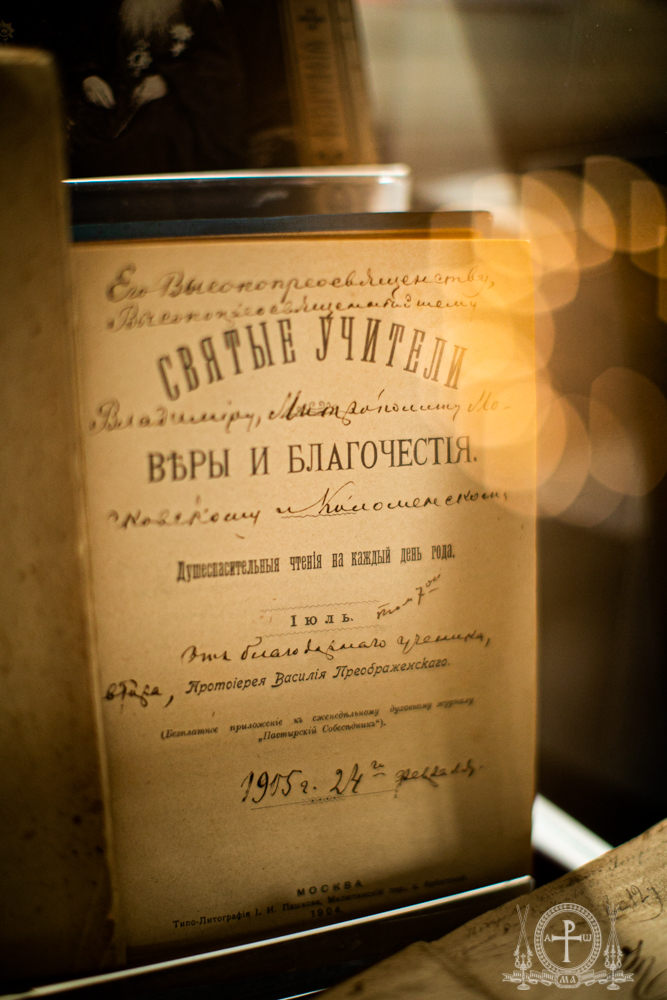 Его Высокопреосвященству,
Высокопреосвященнѣйшему
СВЯТЫЕ УЧИТЕЛИ
Владиміру, Митрополиту Мо-
ВѢРЫ И БЛАГОЧЕСТІЯ.
сковскому и Коломенскому
Душеспасительныя чтенія на каждый день года.
Іюль. томъ 7ой
Отъ благодарнаго ученика,
автора, Протоіерея Василія Преображенскаго.
(Безплатное приложеніе къ еженедѣльному духовному журналу
„Пастырскій Собесѣдникъ“).
1905 г. 24го февраля.
МОСКВА.
Типо-Литографія І. И. Пашкова,
1904.